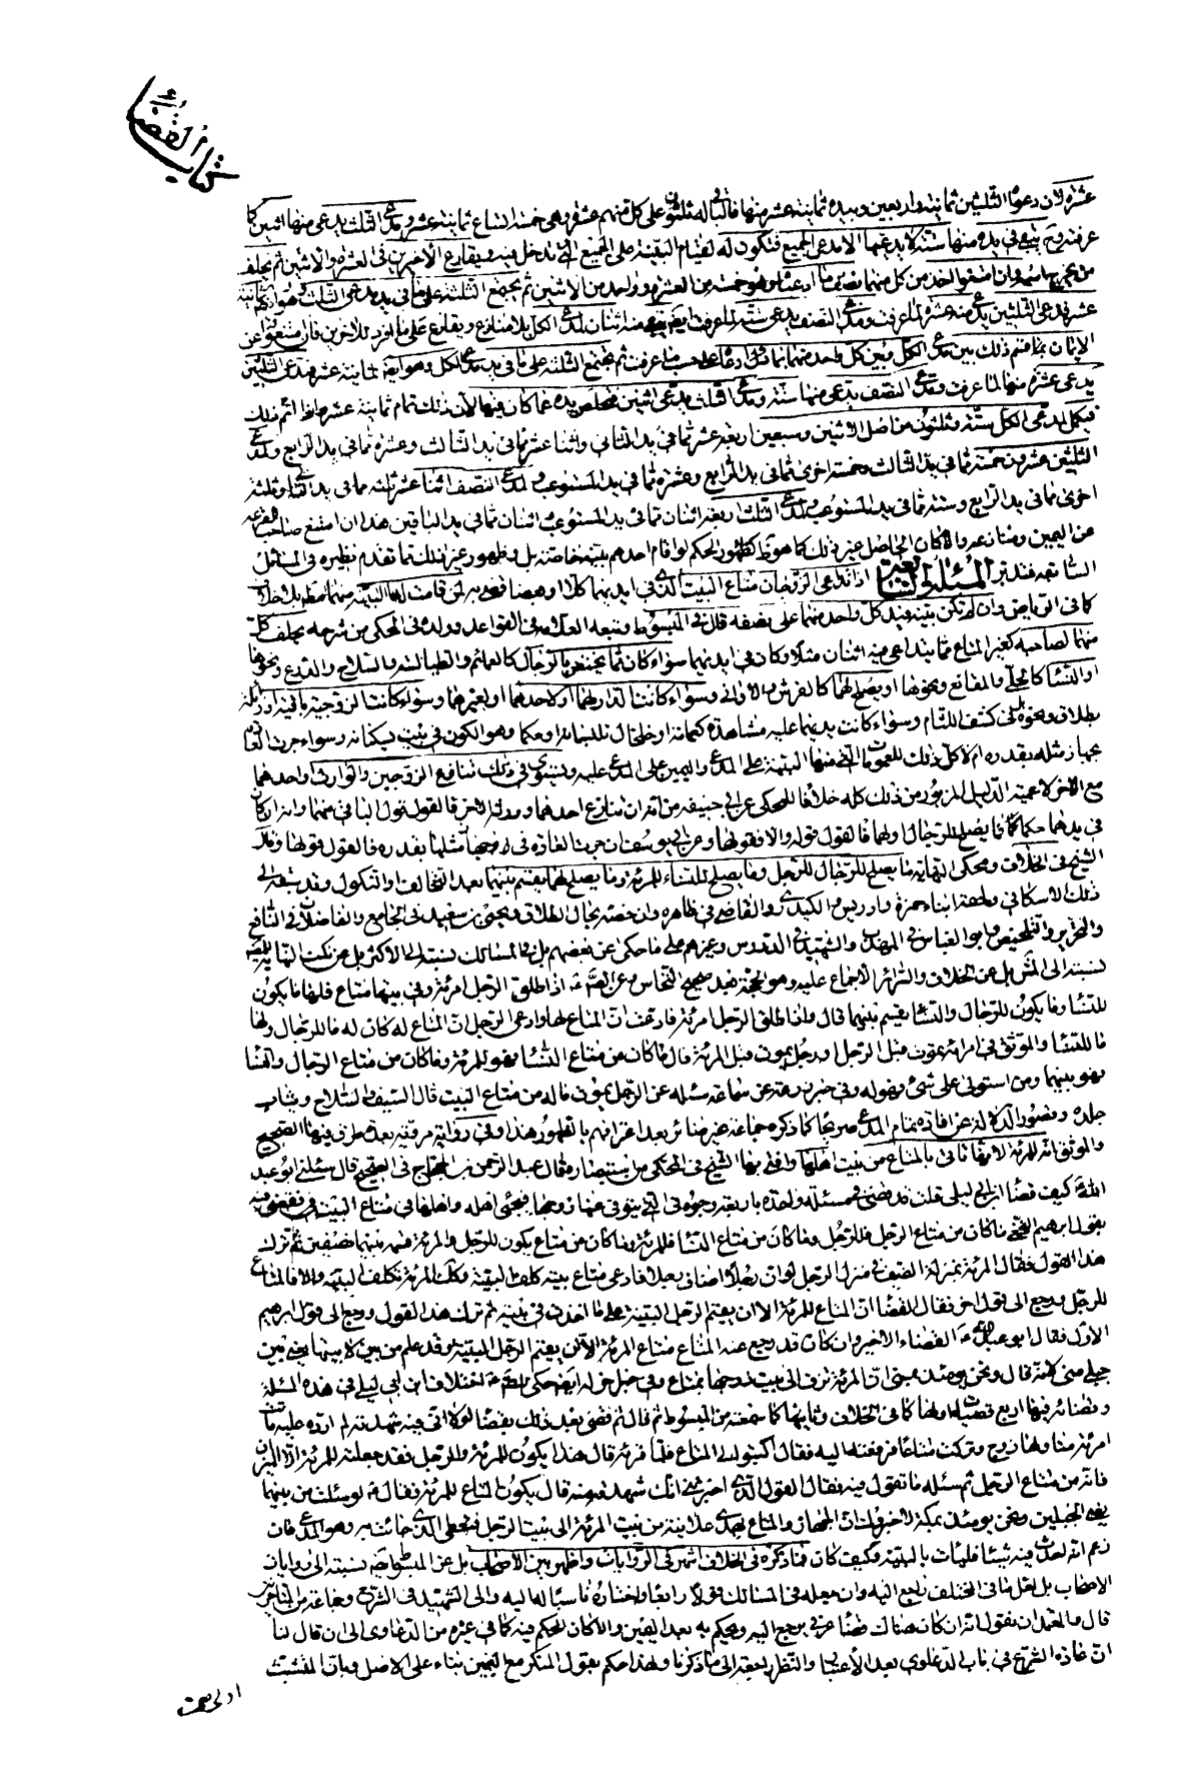 كتاب القضاء
عشرة لان دعوى الثلثين ثمانية واربعين وبيده ثمانية عشر منها فالباقي له ثلثون على كل منهم عشرة وهى خمسة اتساع ثمانية عشر ومدعى الثلث يدعى منها اثنين كما
عرفته و يبقى في يده منها ستة لا يدعيها الا مدعى الجميع فتكون له لقيام البينة على الجميع الذى تدخل فيه ويقارع الآخرين في العشرة والاثنين ثم يحلف
من يخرج اسمه وان امتنعوا اخذ من كل منهما نصف ما ادعياه وهو خمسة من العشرة وواحد من الاثنين ثم يجمع الثلثة على ما في يد مدعى الثلث وهو ايضا ثمانية
عشر فمدعى الثلثين يدعى منه عشرة لما عرفت ومدعى النصف يدعى ستة لما عرفت ايضا يبقى منه اثنان لمدعى الكل بلا منازع ويقارع على ما افرد للآخرين فان امتنعوا عن
الايمان يقسم ذلك بين مدعى الكل وبين كل واحد منهما بماثل ادعائه على حسب ما عرفت ثم يجتمع الثلثة على ما في يد مدعى الكل وهو ايضا ثمانية عشر فمدعى الثلثين
يدعى عشرة منها لما عرفت ومدعى النصف يدعى منها ستة ومدعى الثلث يدعى اثنين فتخلص يده عما كان فيها لان ذلك تمام ثمانية عشر فاذا تم ذلك
فيكمل لمدعى الكل ستة وثلثون من اصل الاثنين وسبعين اربعة عشر مما في يد الثاني واثنا عشر مما في يد الثالث وعشرة مما في يد الرابع ولمدعى
الثلثين عشرون خمسة مما في يد الثالث وخمسة اخرى مما في يد الرابع وعشرة مما في يد المستوعب ولمدعى النصف اثنا عشر ثلثة مما في يد الثاني وثلثة
اخرى مما في يد الرابع وستة مما في يد المستوعب ولمدعى الثلث اربعة اثنان مما في يد المستوعب اثنان مما في يد الباقين هذا ان امتنع صاحب القرعة
عن اليمين ومنازعه والا كان الحاصل غير ذلك كما هو ظ كظهور الحكم لو اقام احدهم بينة خاصة بل وظهور غير ذلك مما تقدم نظيره في المسائل
السابقة فتدبر المسئلة التاسعة اذا تداعى الزوجان متاع البيت الذى في ايديهما كلا او بعضا قضى به لمن قامت له البينة منهما قطعا بلا خلاف
كما في الرياض وان لم تكن بينة فيد كل واحد منهما على نصفه قال في المبسوط وتبعه العلامة في القواعد وولده في المحكى من شرحه يحلف كل
منهما لصاحبه كغير المتاع مما يتداعى فيه اثنان مثلا وكان في ايديهما سواء كان مما يختص بالرجال كالعمائم والطيالسة والسلاح والدرع ونحوها
او النساء كالحلى والمقانع ونحوها او يصلح لهما كالفرش والاوانى وسواء كانت الدار لهما او لاحدهما او لغيرهما وسواء كانت الزوجية باقية او زائلة
بطلاق ونحوه
بجهاز مثله بقدره ام لا كل ذلك للعمومات التي منها البينة على المدعى واليمين على المدعى عليه ويستوى في ذلك تنازع الزوجين والوارث واحدهما
مع الآخر لاعمية الدليل المزبور من ذلك كله خلافا للمحكى عن ابى حنيفة من انه ان تنازع احدهما وورثة الآخر فالقول قول الباقى منهما وانه ان كان
في يدهما حكما فما يصلح للرجال او لهما فالقول قوله والا فقولها وعن ابى يوسف ان جرت العادة في
الشيخ في الخلاف ومحكى النهاية ما يصلح للرجال للرجل وما يصلح للنساء للمرئة وما يصلح لهما يقسم بينهما بعد التحالف او النكول وقد سبقه الى
ذلك الاسكافى ولحقه ابناء حمزة وادريس والكيدرى والقاضى في ظاهره وان خصه بحال الطلاق ويحيى بن سعيد في الجامع والفاضلان في النافع
والتحرير والتلخيص وابو العباس في المهذب والشهيد في الدروس وغيرهم على ما حكى عن بعضهم بل في المسالك نسبته الى الاكثر بل عن نكت النهاية
نسبته الى المش بل عن الخلاف والسرائر الاجماع عليه وهو الحجة بعد صحيح النخاس وعن الصادق ع اذا طلق الرجل امرئة وفي بيتها متاع فلها ما يكون
للنساء وما يكون للرجال والنساء يقسم بينهما قال واذا طلق الرجل امرئة فادعت ان المتاع لها وادعى الرجل ان المتاع له كان له ما للرجال ولها
ما للنساء والموثق في امرئة تموت قبل الرجل او رجل يموت قبل المرئة قال ما كان من متاع النساء فهو للمرئة وما كان من متاع الرجال والنساء
فهو بينهما ومن استولى على شئ منه فهو له وفي خبر زرعة عن سماعة سئلته عن الرجل يموت ماله من متاع البيت قال السيف والسلاح وثياب
جلده وقصور الدلالة عن افادة تمام المدعى صريحا كما ذكره جماعة غير ضائر بعد اعترافهم بالظهور هذا وفي رواية مروية بعدة طرق فيها الصحيح
والموثق انه للمرئة لانها تاتى بالمتاع من بيت اهلها وافتى بها الشيخ في المحكى من استبصاره فقال عبد الرحمن بن الحجاج في الصحيح قال سئلنى ابو عبد
الله ع كيف قضاء ابن ابى ليلى قلت قد قضى في مسئلة واحدة باربعة وجوه في التي يتوفى عنها زوجها فيجئ اهله واهلها في متاع البيت فقضى فيه
بقول ابرهيم النخعى ما كان من متاع الرجل فللرجل وما كان من متاع النساء فللمرئة وما كان من متاع يكون للرجل والمرئة قسمه بينهما نصفين ثم ترك
هذا القول فقال المرئة بمنزلة الضيف في منزل الرجل لو ان رجلا اضاف رجلا فادعى متاع بيته كلف البينة وكك المرئة تكلف البينة والا فالمتاع
للرجل ورجع الى قول آخر فقال القضاء ان المتاع للمرئة الا ان يقيم الرجل البينة على ما احدث في بيته ثم ترك هذا القول ورجع الى قول ابرهيم
الاول فقال ابو عبد الله ع القضاء الاخير وان كان قد رجع عنه المتاع متاع المرئة الا ان يقيم الرجل البينة قد علم من بين لابتيها يعنى بين
جبلى منى لانه قال ونحن يومئذ بمنى ان المرئة تزف الى بيت زوجها بمتاع وفي خبر له ايضا حكى للصادق ع اختلاف ابن ابى ليلى في هذه المسئلة
وقضائه فيها اربع قضيات اولها كما في الخلاف وثانيها كما سمعته من المبسوط ثم قال ثم قضى بعد ذلك بقضاء لولا انى فيه شهدته لم اروه عليه ماتت
امرئة منا ولها زوج وتركت متاعا فرفعته اليه فقال اكتبوا لى المتاع فلما قرئه قال هذا يكون للمرئة وللرجل فقد جعلته للمرئة الا الميزان
فانه من متاع الرجل ثم سئله ما تقول فيه فقال القول الذى اخبرتنى انك شهدته منه قال يكون المتاع للمرئة فقال ع لو سئلت من بينهما
يعنى الجبلين ونحن يومئذ بمكة لاخبروك ان الجهاز والمتاع يهدى علانية من بيت المرئة الى بيت الرجل فتعطى الذى جائت به وهو المدعى فان
زعم انه احدث فيه شيئا فليات بالبينة وكيف كان فما ذكره في الخلاف اشهر في الروايات واظهر بين الاصحاب بل عن المبسوط ايضا نسبته الى روايات
الاصحاب بل لعل ما في المختلف راجع اليه وان جعله في المسالك قولا رابعا واختاره ناسبا له اليه والى الشهيد في الشرح وجماعة من المتاخرين
قال والمعتمد ان نقول انه ان كان هناك قضاء عرفى يرجع اليه ويحكم به بعد اليمين والا كان الحكم فيه كما في غيره من الدعاوى الى ان قال لنا
ان عادة الشرع في باب الدعاوى بعد الاعتبار والنظر راجعة الى ما ذكرنا ولهذا حكم بقول المنكر مع اليمين بناء على الاصل وبان المتشبث
اولى من